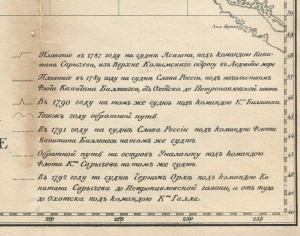 Плавание въ 1787 году на суднѣ Ясашна, подъ командою Капи-
тана Сарычева, изъ Верхне Колымскаго острогу въ Ледовитое море
Плаваніе въ 1789 году на суднѣ Слава Россіи, подъ начальствомъ
Флота Капитана Биллингса, отъ Охотска до Петропавловской гавани
Въ 1790 году на томъ же суднѣ подъ командою К. Биллингса
Тогожъ году обратной путь.
Въ 1791 году на суднѣ Слава Россіи подъ командою Флота
Капитана Биллингса на томъ же суднѣ.
Обратной путь на островъ Уналашку подъ командою
Флота Кна Сарычева на томъ же суднѣ.
Въ 1792 году на суднѣ Черномъ Орлѣ подъ командою Ка-
питана Сарычева до Петропавловской гавани, а отъ туда
до Охотска подъ командою Кна Галла.
220 225 230 235
40